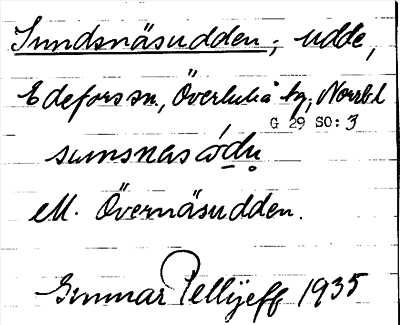 Sundsnäsudden; udde,
Edefors sn., Överluleå tg, Norrb. l
G 29 SO: 3
sunsnasódu
ell. Övernäsudden.
Gunnar Pellijeff 1935